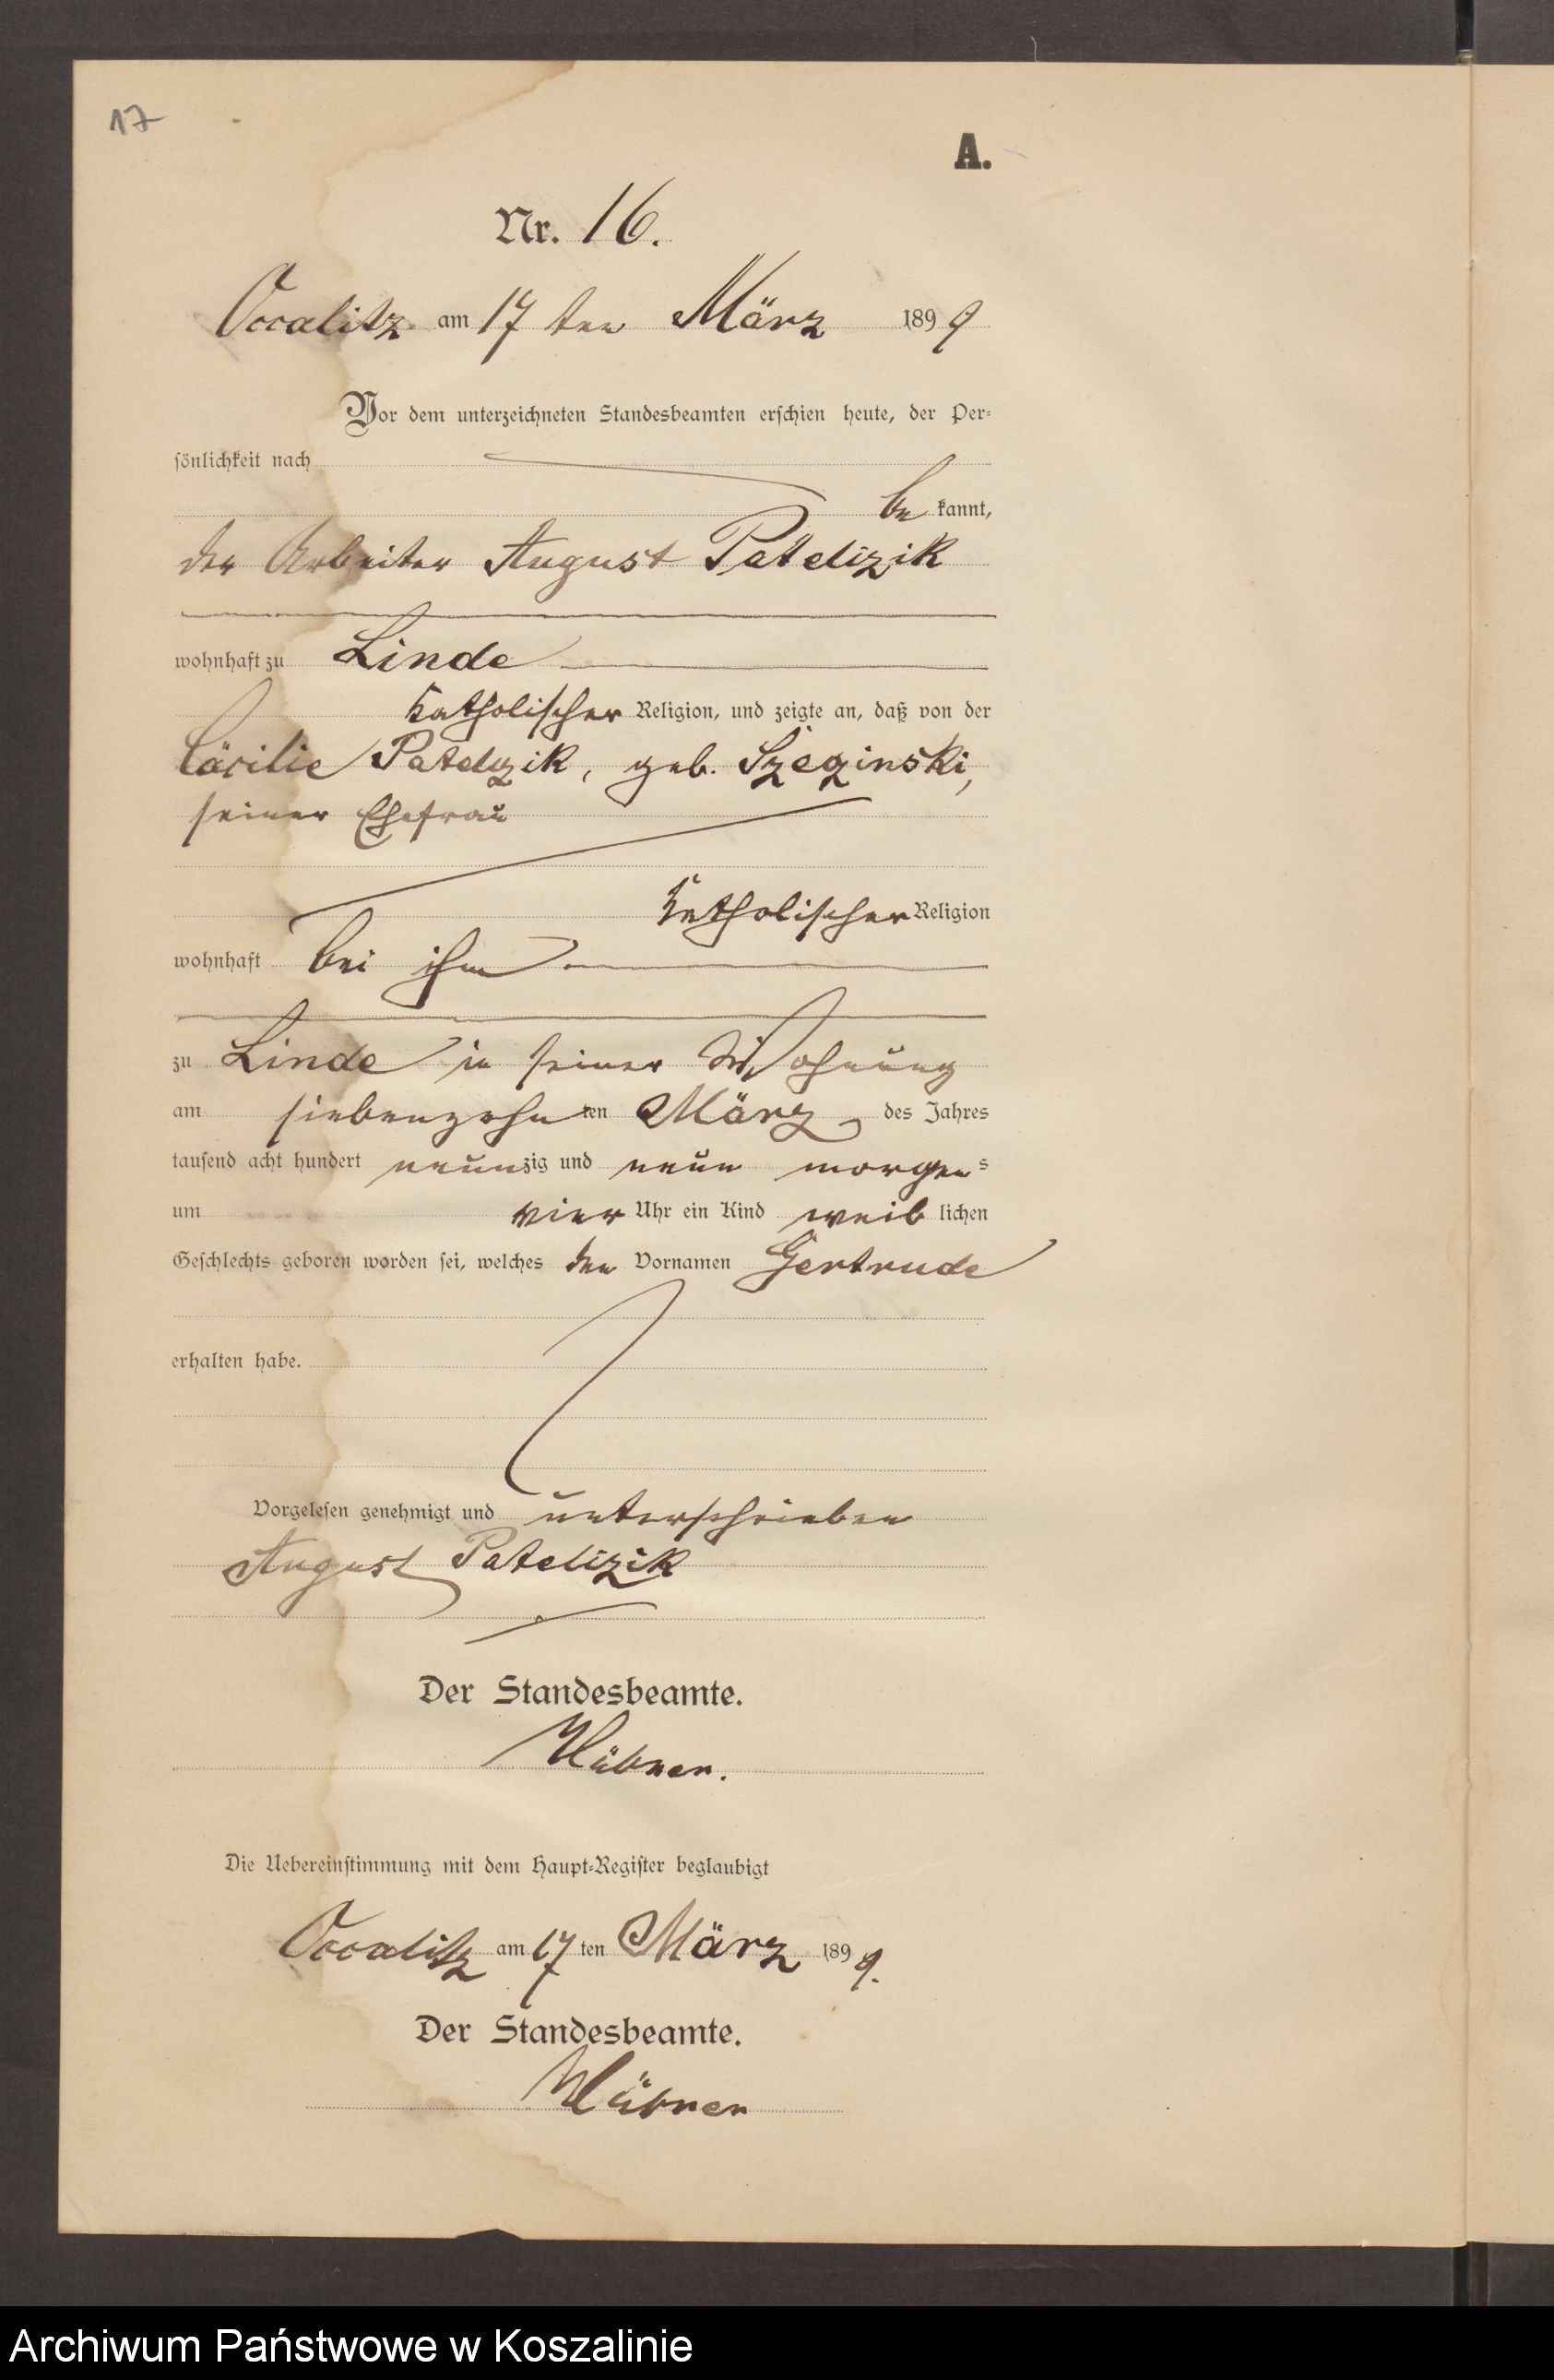 17
A.
Nr. 16.
Occalitz am 17 ten März 1899
Vor dem unterzeichneten Standesbeamten erschien heute, der Per-
sönlichkeit nach
be kannt,
der Arbeiter August Patelizik
wohnhaft zu Linde
katholischer Religion, und zeigte an, daß von der
Cäcilie Patelizik, geb. Szeginski,
seiner Ehefrau
katholischer Religion
wohnhaft bei ihm
zu Linde in seiner Wohnung
am siebenzehnten März des Jahres
tausend acht hundert neunzig und neun morgens
um vier Uhr ein Kind weiblichen
Geschlechts geboren worden sei, welches den Vornamen Gertrude
erhalten habe.
Vorgelesen genehmigt und unterschrieben
August Patelizik
Der Standesbeamte.
Hübner.
Die Uebereinstimmung mit dem Haupt-Register beglaubigt
Occalitz am 17 ten März 1899.
Der Standesbeamte.
Hübner
Archiwum Państwowe w Koszalinie